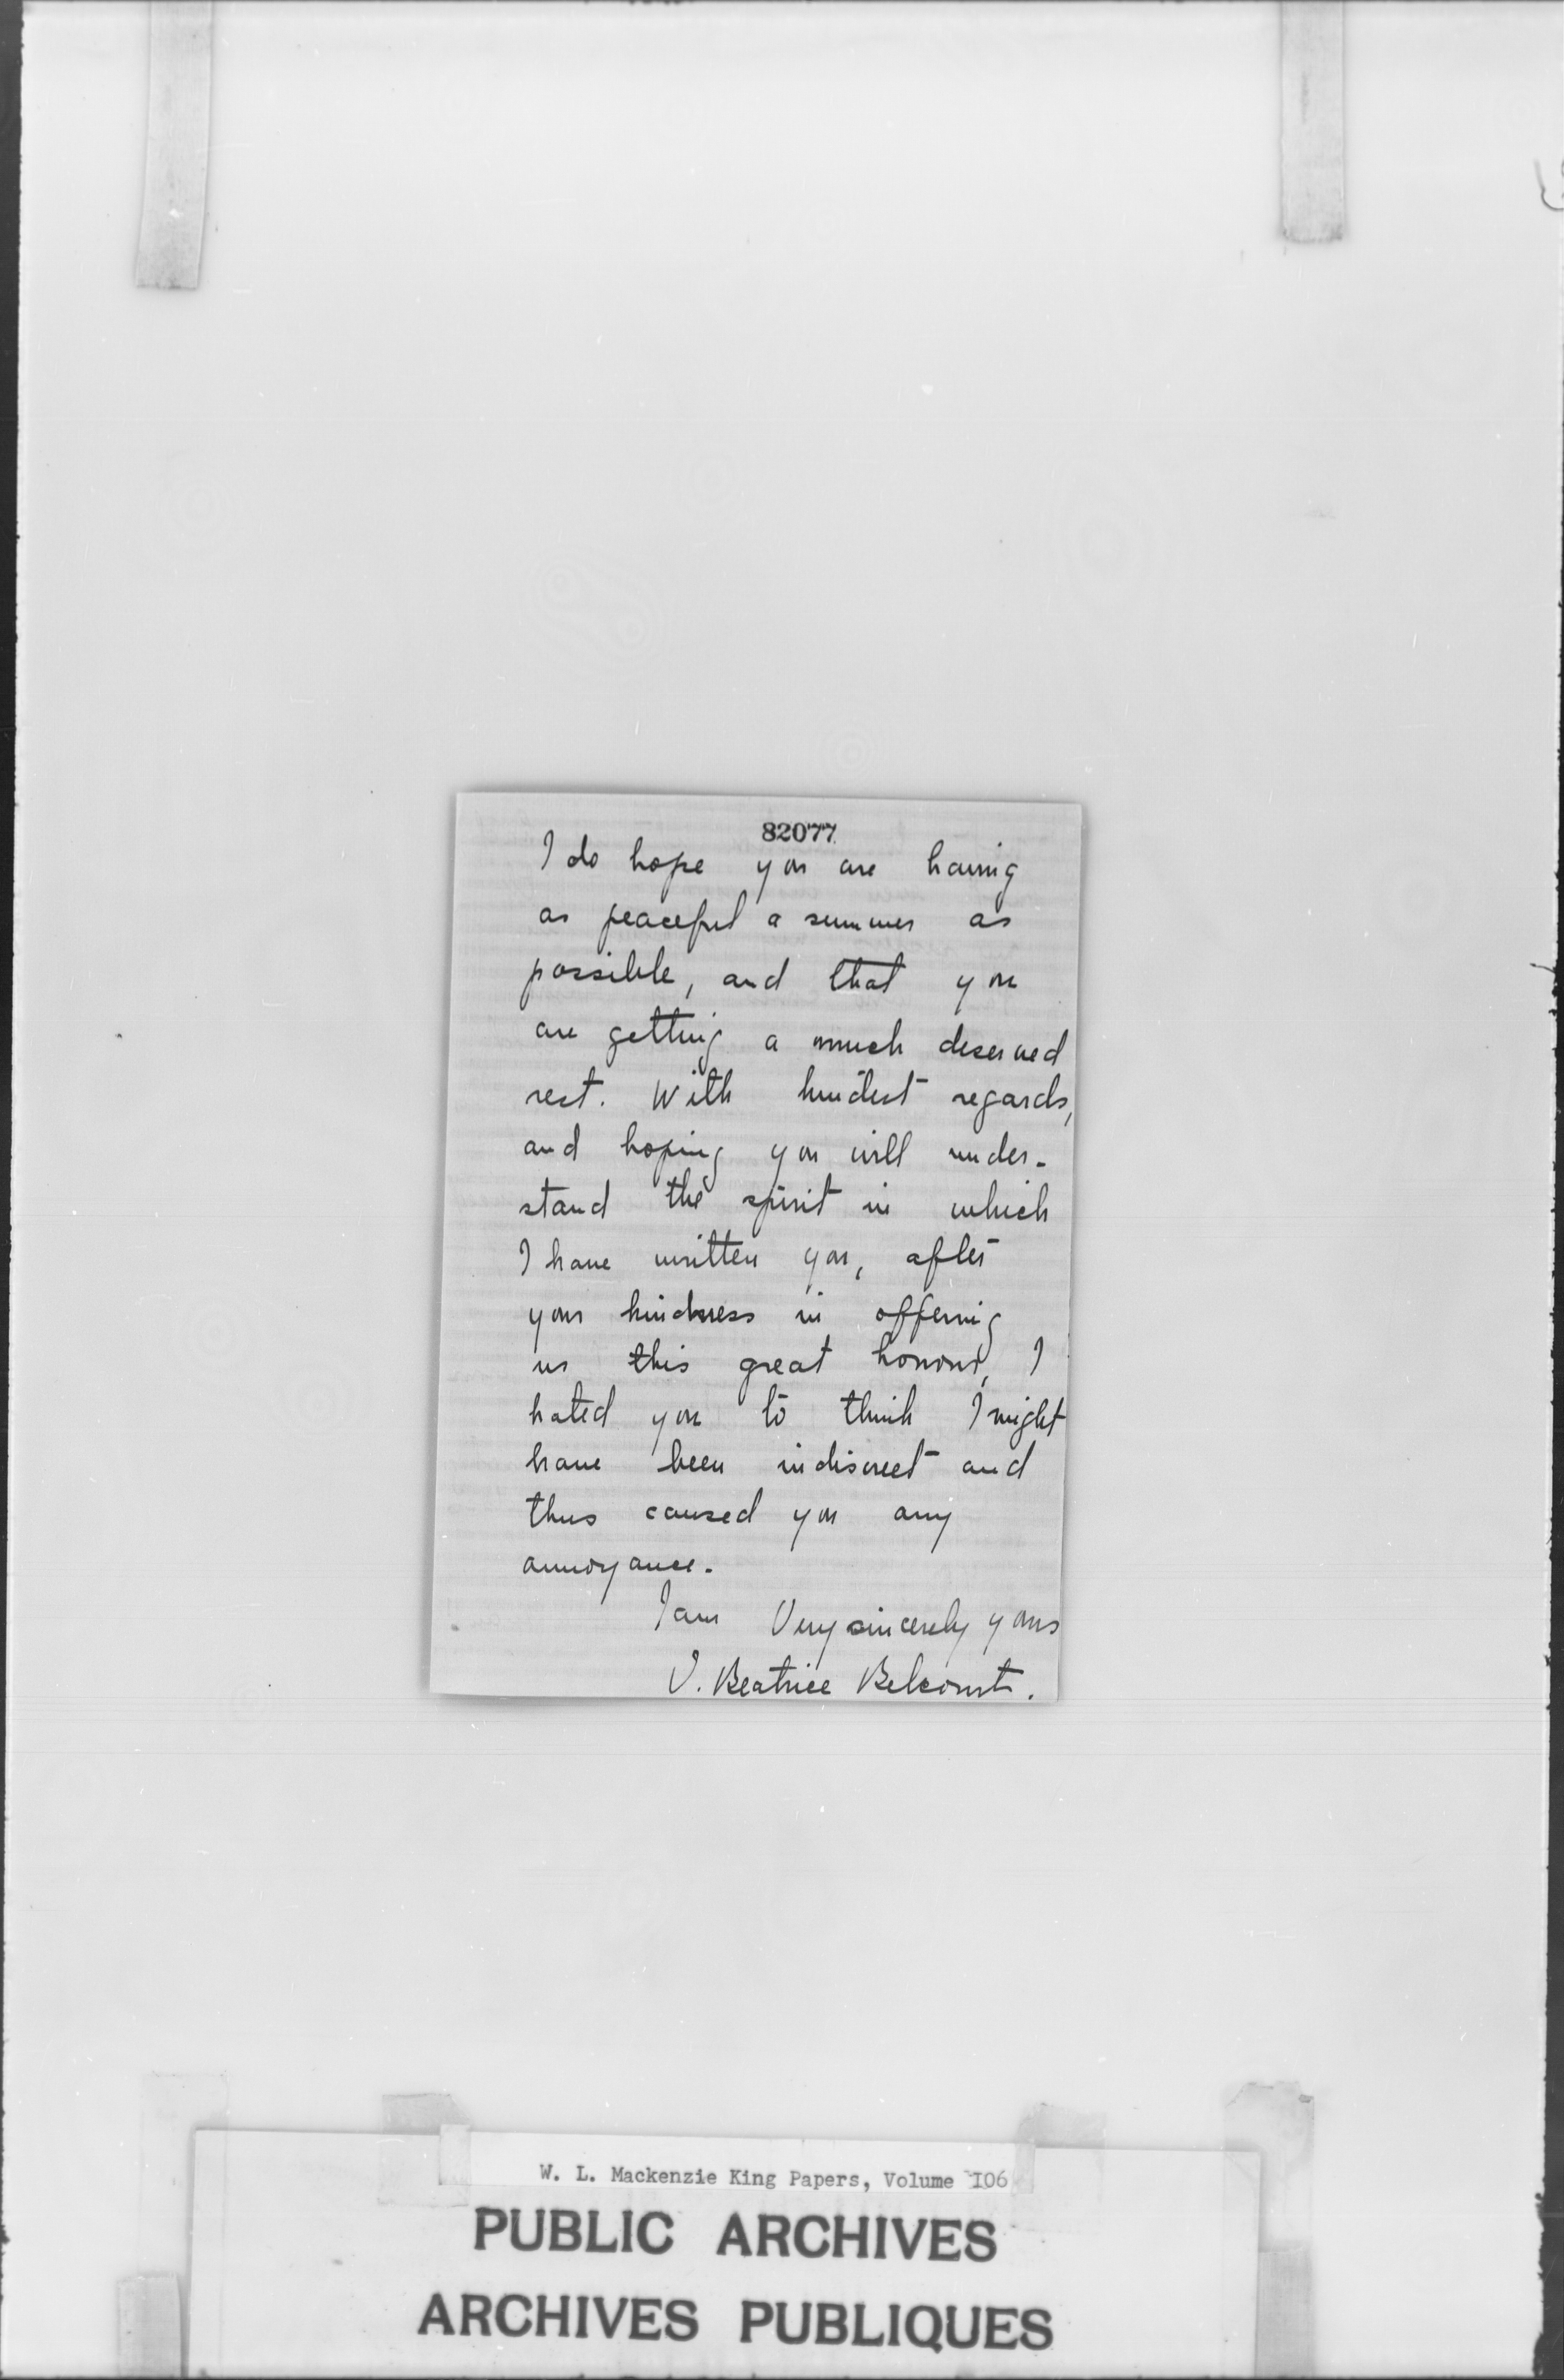 82077
I do hope you are having
as peaceful a summer as
possible, and that you
are getting a much deserved
rest. With kindest regards,
and hoping you will under-
stand the spirit in which
I have written you, after
your kindness in offering
us this great honour, I
hated you to think I might
have been indiscreet and
thus caused you any
annoyance.
I am Very sincerely yours
J. Beatrice Belcourt.
W. L. Mackenzie King Papers, Volume 106
PUBLIC ARCHIVES
ARCHIVES PUBLIQUES